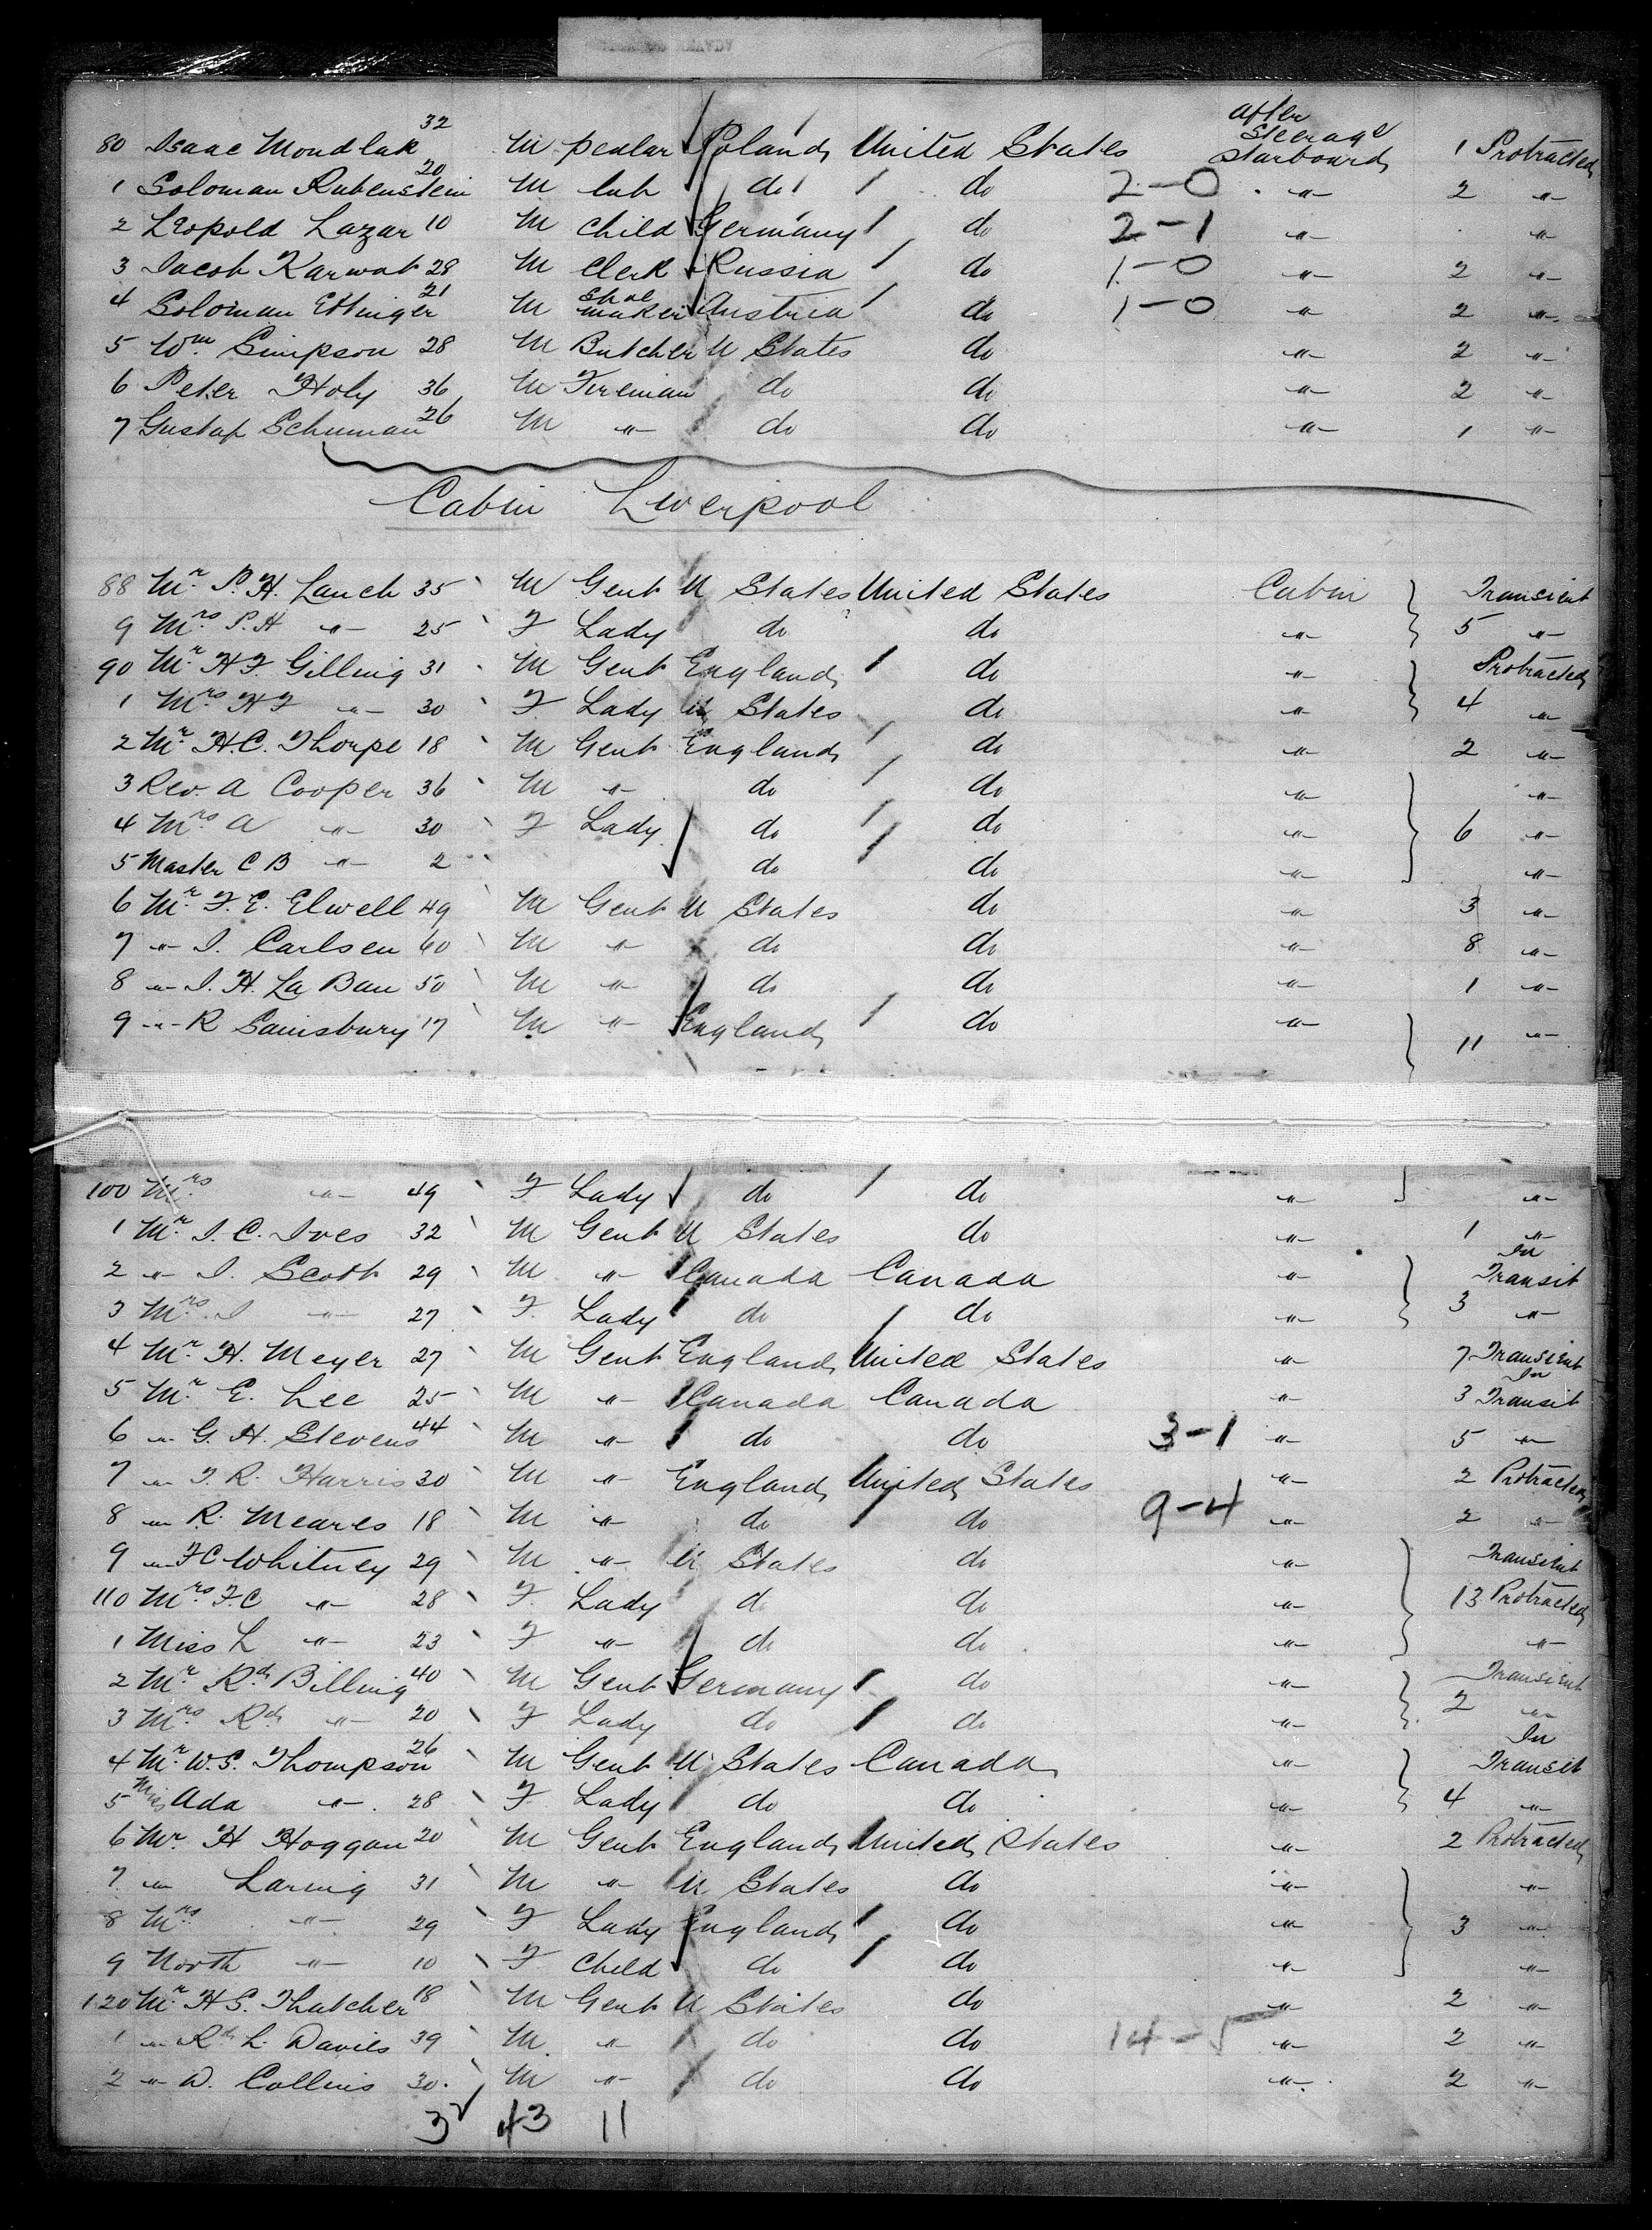 After
80 Isaac Mondlak 32 M pedlar Poland United States Steerage Starboard 1 Protracted
1 Soloman Rubenstein 20 M lab do do 2-0 " 2 "
2 Leopold Lazar 10 M Child Germany do 2-1 " "
3 Jacob Karwat 28 M Clerk Russia do 1-0 " 2 "
4 Soloman Ettinger 21 M Shoe maker Austria do 1-0 " 2 "
5 Wm Simpson 28 M Butcher U States do " 2 "
6 Peter Holy 36 M Fireman do do " 2 "
7 Gustaf Schuman 26 M " do do " 1 "
Cabin Liverpool
88 Mr P. H. Lauch 35 M Gent U States United States Cabin Transient
9 Mrs P. H " 25 F Lady do do " 5 "
90 Mr H F Gilling 31 M Gent England do " Protracted
1 Mrs H F " 30 F Lady U States do " 4 "
2 Mr H. C. Thorpe 18 M Gent England do " 2 "
3 Rev. A Cooper 36 M " do do " "
4 Mrs A " 30 F Lady do do " 6 "
5 Master C B " 2 do do " "
6 Mr F. E. Elwell 49 M Gent U States do " 3 "
7 " I. Carlsen 60 M " do do " 8 "
8 " I. H. La Bau 50 M " do do " 1 "
9 " R Sainsbury 17 M " England do " 11 "
100 Mrs " 49 F Lady do do " "
1 Mr I. C. Ives 32 M Gent U States do " 1 "
2 " I. Scott 29 M " Canada Canada " In Transit
3 Mrs I " 27 F Lady do do " 3 "
4 Mr H. Meyer 27 M Gent England United States " 7 Transient
5 Mr E. Lee 25 M " Canada Canada " 3 In Transit
6 " G. H. Stevens 44 M " do do 3-1 " 5 "
7 " F. R. Harris 30 M " England United States " 2 Protracted
8 " R. Meares 18 M " do do 9-4 " 2 "
9 " F C Whitney 29 M " U States do " Transient
110 Mrs F. C " 28 F Lady d do " 13 Protracted
1 Miss L " 23 F " do do " "
2 Mr Rd Billing 40 M Gent Germany do " Transient
3 Mrs Rd " 20 F Lady do do " 2 "
4 Mr W. S. Thompson 26 M Gent U States Canada " In Transit
5 Miss Ada " 28 F Lady do do " 4 "
6 Mr H Hoggan 20 M Gent England United States " 2 Protracted
7 " Laring 31 M " U States do " "
8 Mrs " 29 F Lady England do " 3 "
9 North " 10 F Child do do " "
120 Mr H S. Thatcher 18 M Gent U States do " 2 "
1 " Rd L. Davies 39 M " do do 14-5 " 2 "
2 " D. Collins 30 M " do do " 2 "
32 43 11